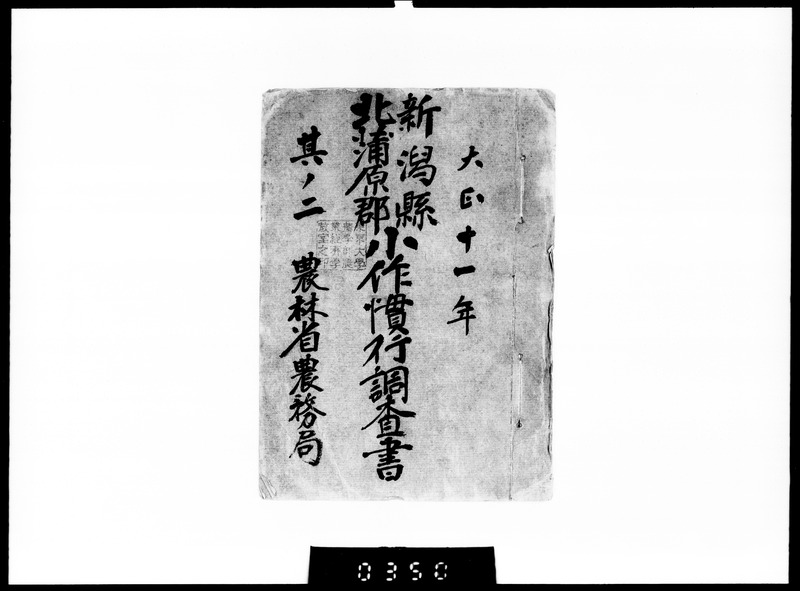 大正十一年
新潟縣
北蒲原郡
小作慣行調査書
其ノ二
農林省農務局
0350